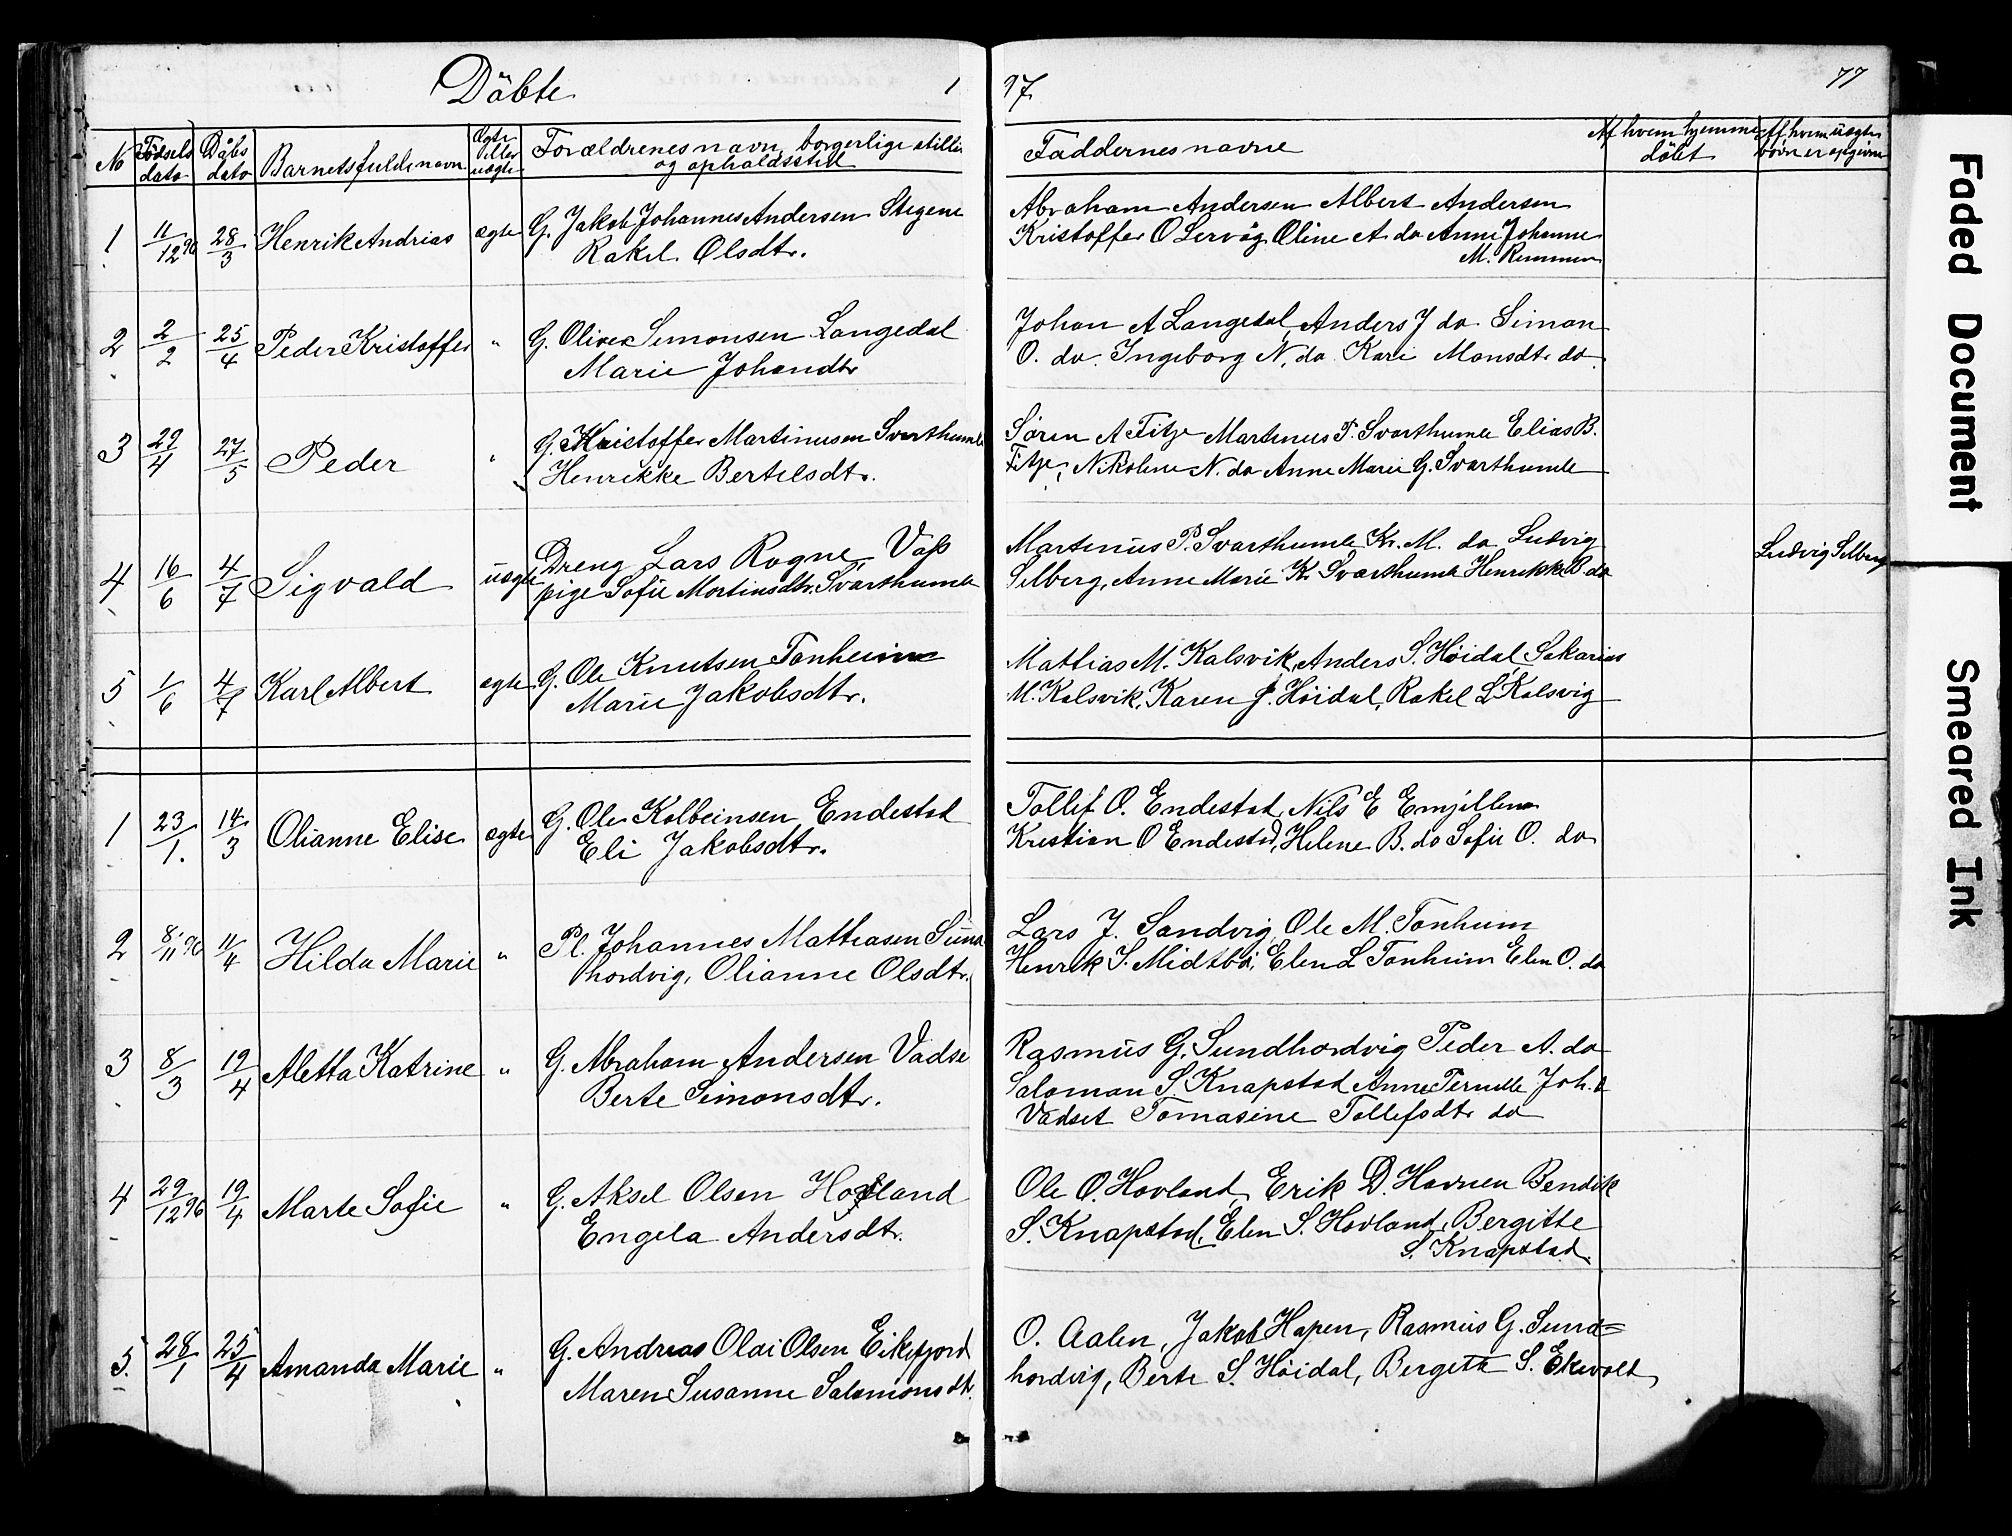 Döbte 1
97. 77
No Födsels dato Dåbs dato Barnets fulde navn Ægte eller uægte Forældrenes navn, borgerlige stilli og opholdssted
Faddernes navne Af hvem hjemme döbt Af hvem uægte börn er opgivne
1 11/12 96 28/3 Henrik Andrias ægte G. Jakob Johannes Andersen Stegene
Rakel Olsdtr.
Abraham Andersen Albert Andersen
Kristoffer O Lervåg Oline A do Anne Johanne
M. Remmen
2 2/2 25/4 Peder Kristoffer " G. Oliver Simonsen Langedal
Marie Johandtr
Johan A Langedal, Anders J do Simon
O. do. Ingeborg N. do Kari Monsdtr do.
3 29/4 27/5 Peder " G. Kristoffer Martinusen Svarthumle
Henrikke Bertelsdtr.
Sören A Fitje Martinus P. Svarthumle Elias B.
Fitje, Nikoline N. do Anne Marie G. Svarthumle
4 16/6 4/7 Sigvald uægte Dreng Lars Rogne, Voss
pige Sofie Martinsdtr. Svarthumle
Martinus P. Svarthumle Kr. M. do Ludvig
Selberg, Anne Marie K. Svarthumle Henrikke B do
Ludvig Selberg
5 1/6 4/7 Karl Albert ægte G. Ole Knutsen Tonheim
Marie Jakobsdtr.
Mattias M. Kalsvik, Anders S. Höidal Sakarias
M. Kalsvik, Karen J. Höidal, Rakel L Kalsvig
1 23/1. 14/3 Olianne Elise ægte G. Ole Kolbeinsen Endestad
Eli Jakobsdtr.
Tollef O. Endestad, Nils E
Kristian O Endestad, Helene B. do Sofie O. do
2 8/11 96 11/4 Hilda Marie " Pl. Johannes Mathiasen Sund
hordvig, Olianne Olsdtr.
Lars J. Sandvig, Ole M. Tonheim
Henrik S. Midtbö, Elen L Tonheim Elen O. do
3 8/3 19/4 Aletta Katrine " G. Abraham Andersen Vadse
Berte Simonsdtr.
Rasmus G. Sundhordvig Peder A. do
Saloman S Knapstad Anne Pernille Joh. d
Vadset Tomasine Tollefsdtr do
4 29/12 96 19/4 Marte Sofie " G. Aksel Olsen Hovland
Engela Andersdtr.
Ole O. Hovland, Erik D. Havnen Bendik
S. Knapstad, Elen S. Hovland, Bergitte
S. Knapstad.
5. 28/1 25/4 Amanda Marie " G. Andreas Olai Olsen Eikefjord
Maren Susanne Salomonsdtr.
O. Aalen, Jakob Hapen, Rasmus G. Sund=
hordvig, Berte S. Höidal, Bergitte S. Ekevolt
Faded Document
Smeared Ink